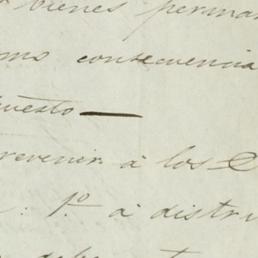 bienes perma
omo consecuencia
uesto —
revenir á los
1.º á distri